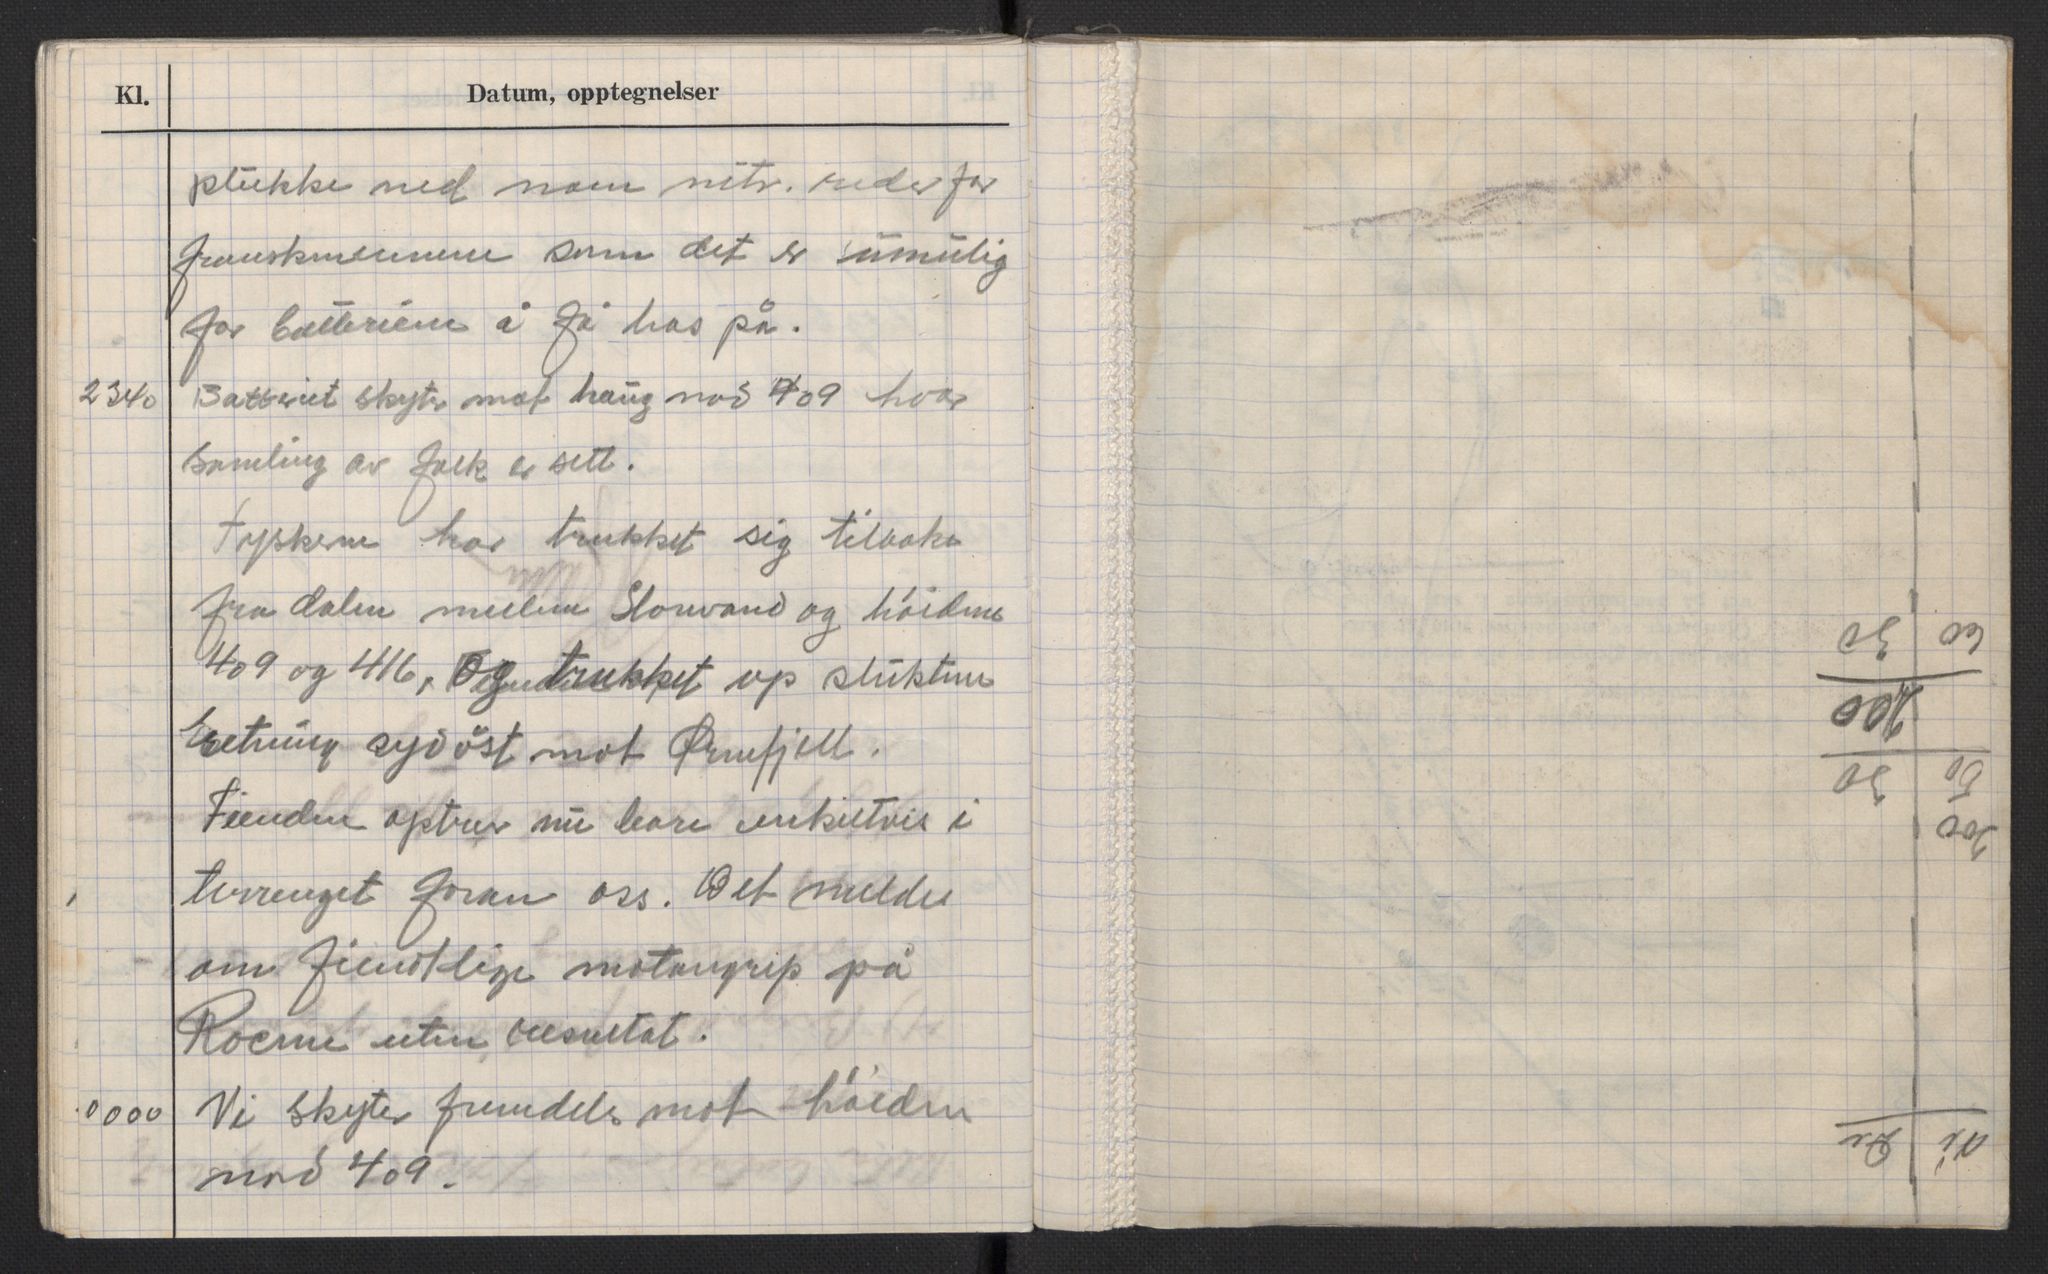 Kl. Datum, opptegnelser
plukke ned noen mitr. reder for
franskmennene som det er umulig
for batteriene å få has på.
2340 Batteriet skyter mot haug nord 409 hvor
samling av folk er sett.
Tyskerne har trukket sig tilbake
fra dalen mellem Storvand og höidene
409 og 416, og trukket op slukten
retning sydöst mot Ørnefjell.
Fienden optrer nu bare enkeltvis i
terrenget foran oss. Det meldes
om fiendtlige motangrep på
Roerne uten resultat.
0000 Vi skyter fremdeles mot höiden
nord 409.
Kr Ør
200
50 30
200
60 30